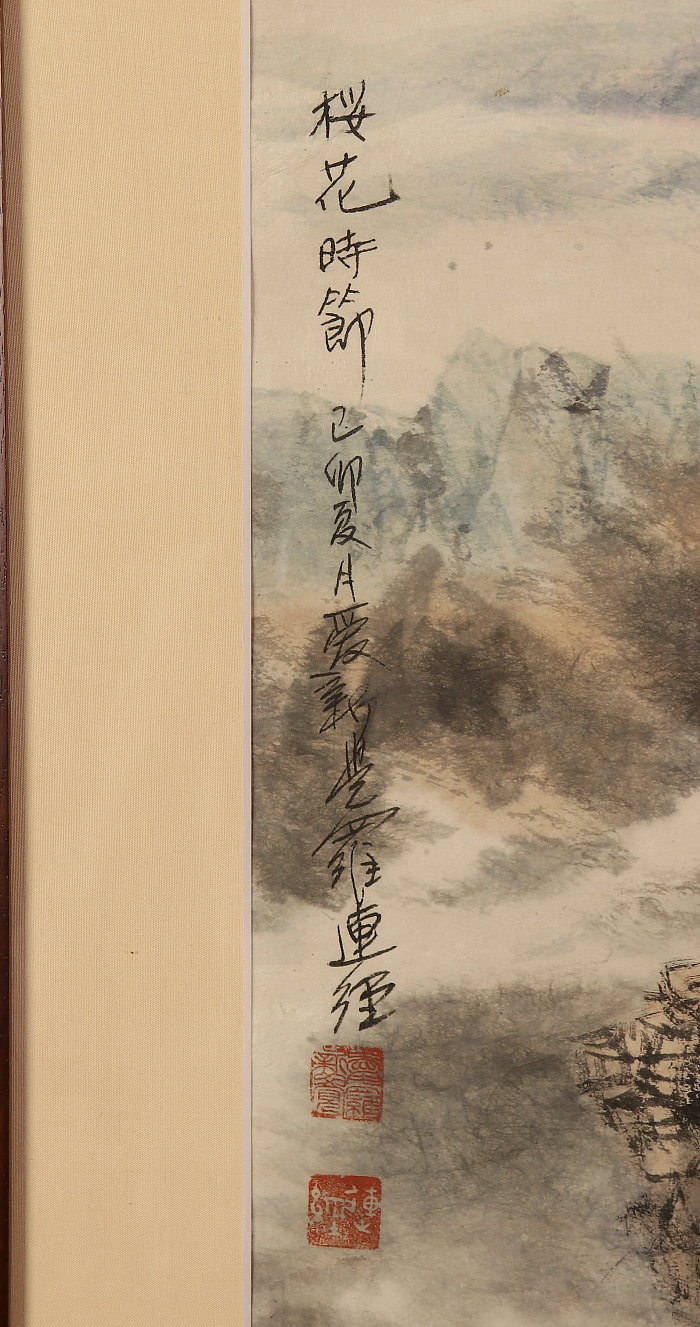 桜花時節 己卯夏月愛新覺羅連經
愛新覺羅
連經